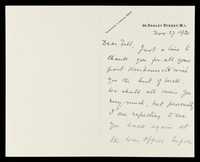 HARLEY STREET, W.1.
Nov. 27. 1920
Dear Tull,
Just a line to
thank you for all your
past kindnesses & wish
you the best of luck.
We shall all miss you
very much, but personally
I am expecting to see
you back again at
the War Office before